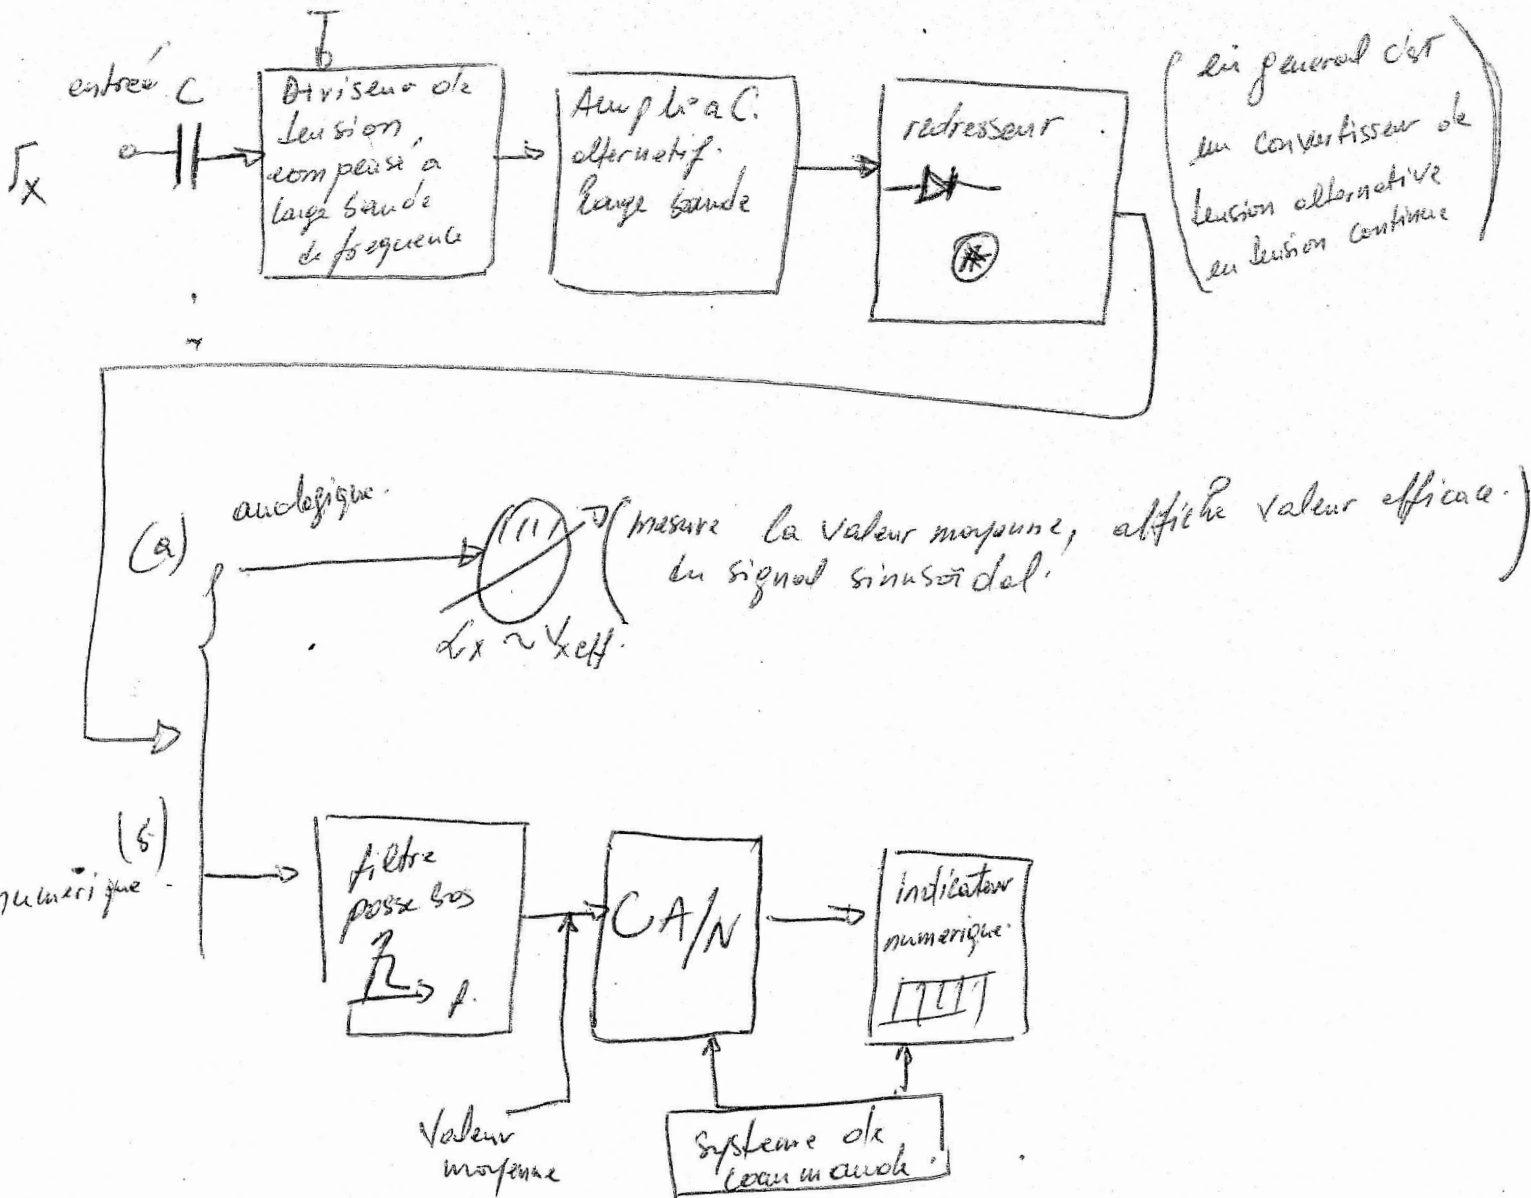 entreé C
Diviseur de
tension
compensé a
large bande
de frequence
Ampli a C.
alternatif.
large bande
redresseur
(en general c'est
un convertisseur de
tension alternative
en tension continue)
(a) analogique.
(mesure la valeur moyenne, affiche valeur efficace.
du signal sinusoïdal.)
αx ~ Vxeff.
(b)
numérique.
filtre
passe bas
f.
CA/N
indicateur
numerique.
Valeur
moyenne
systeme de
commande.